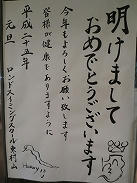 明けまして
おめでとうございます
今年もよろしくお願い致します
皆様が健康でありますように
平成二十五年
元旦
ロンドスイミングスクール東村山